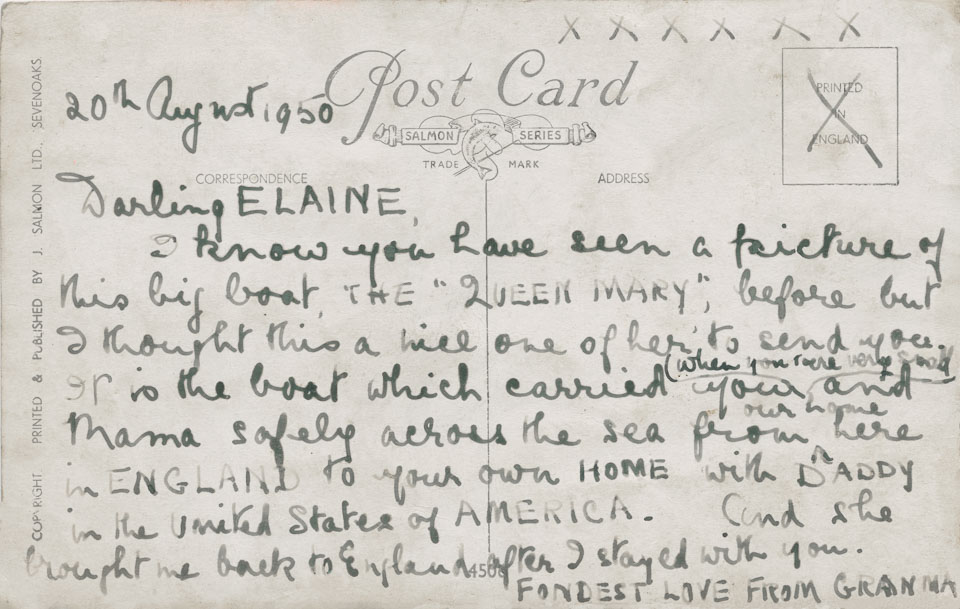 x x x x x x
Post Card
PRINTED
IN
ENGLAND
20th August 1950
SALMON SERIES
TRADE MARK
CORRESPONDENCE
ADDRESS
Darling ELAINE,
I know you have seen a picture of
this big boat, THE "QUEEN MARY", before but
I thought this a nice one of her to send you.
(when you were very small
It is the boat which carried you, and
our home
Mama safely across the sea from here
in ENGLAND to your own HOME with DADDY
in the United States of AMERICA. (and she
brought me back to England after I stayed with you.
450
FONDEST LOVE FROM GRANMA
COPYRIGHT PRINTED & PUBLISHED BY J. SALMON LTD., SEVENOAKS